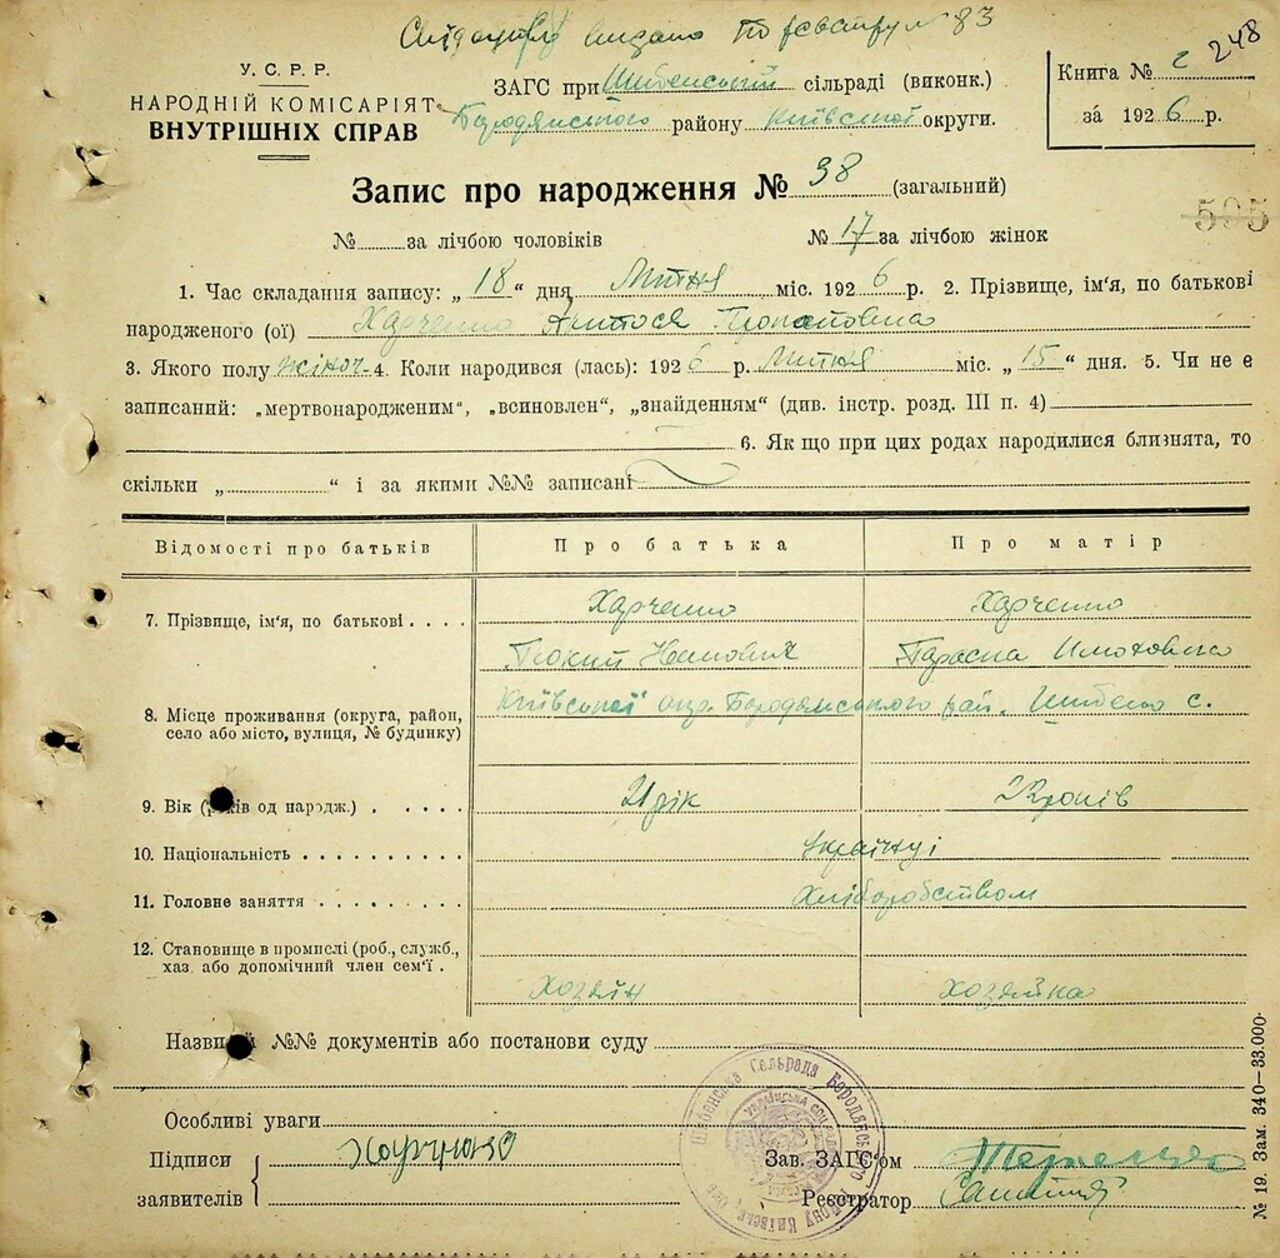 Свідоцтво видано по реєстру № 83
248
У. С. Р. Р.
НАРОДНІЙ КОМІСАРІЯТ
ВНУТРІШНІХ СПРАВ
ЗАГС при Шибенській сільраді (виконк.)
Бородянського району Київської округи.
Книга №
за 1926 р.
Запис про народження № 38 (загальний)
595
№ за лічбою чоловіків № 17 за лічбою жінок
1. Час складання запису: „18“ дня Липня міс. 1926 р. 2. Прізвище, ім'я, по батькові
народженого (ої) Харченко
3. Якого полу жіноч. 4. Коли народився (лась): 1926 р. Липня міс. „15“ дня. 5. Чи не є
записаний: „мертвонародженим“, „всиновлен“, „знайденням“ (див. інстр. розд. III п. 4)
6. Як що при цих родах народилися близнята, то
скільки „ “ і за якими №№ записані
Відомості про батьків Про батька Про матір
7. Прізвище, ім'я, по батькові . . . . Харченко Харченко
Іванович Тараска
8. Місце проживання (округа, район, село або місто, вулиця, № будинку) Київської окр. Бородянського рай. Шибено с.
9. Вік (років од народж.) . . . . . 21 рік років
10. Національність . . . . . . . . . . Українці
11. Головне заняття . . . . . . . . . Хліборобством
12. Становище в промислі (роб., служб.,
хаз. або допомічний член сем'ї . Хозяїн хозяйка
Назви й №№ документів або постанови суду
Особливі уваги
Підписи
заявителів
Харченко
Зав. ЗАГС'ом
Реєстратор
Шибенська Сельрада Бородянсько го району Київськ. окр.
№ 19. Зам. 340—33.000·